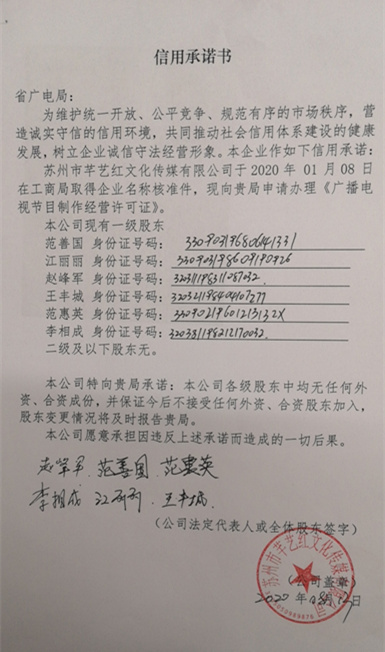 信用承诺书
省广电局：
为维护统一开放、公平竞争、规范有序的市场秩序，营
造诚实守信的信用环境，共同推动社会信用体系建设的健康
发展，树立企业诚信守法经营形象。本企业作如下信用承诺：
苏州市芊艺红文化传媒有限公司于2020 年 01 月 08 日
在工商局取得企业名称核准件，现向贵局申请办理《广播电
视节目制作经营许可证》。
本公司现有一级股东
范善国 身份证号码：
江丽丽 身份证号码：
赵峰军 身份证号码：
王丰城 身份证号码：
范惠英 身份证号码：
李相成 身份证号码：
二级及以下股东无。
本公司特向贵局承诺：本公司各级股东中均无任何外
资、合资成份，并保证今后不接受任何外资、合资股东加入，
股东变更情况将及时报告贵局。
本公司愿意承担因违反上述承诺而造成的一切后果。
赵峰军 范善国 范惠英
李相成 江丽丽 王丰城
（公司法定代表人或全体股东签字）
苏州市芊艺红文化传媒有限公司
（公司盖章）
2020 年 月 日